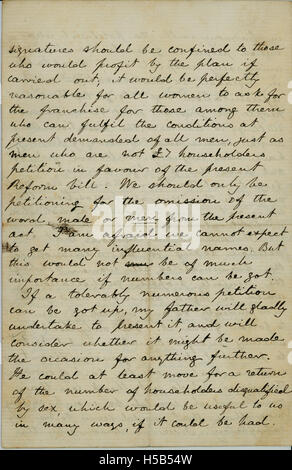 signatures should be confined to those
who would profit by the plan if
carried out, it would be perfectly
reasonable for all women to ask for
the franchise for those among them
who can fulfil the conditions at
present demanded of all men, just as
men who are not £7 householders
petition in favour of the present
Reform bill. We should only be
petitioning for the omission of the
word male or men from the present
act. I am afraid we cannot expect
to get many influential names. But
this would not be of much
importance if numbers can be got.
If a tolerably numerous petition
can be got up, my father will gladly
undertake to present it, and will
consider whether it might be made
the occasion for anything further.
He could at least move for a return
of the number of householders disqualified
by sex, which would be useful to us
in many ways, if it could be had.
alamy stock photo
H5B54W